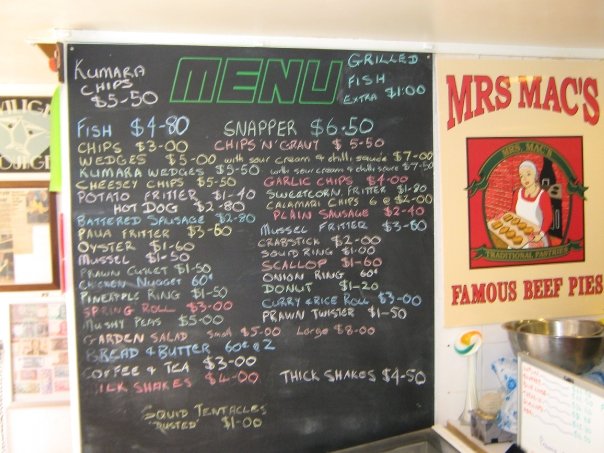 KUMARA CHIPS $5-50
MENU
GRILLED FISH EXTRA $1:00
FISH $4-80
SNAPPER $6-50
CHIPS $3-00
CHIPS 'N' GRAVY $5-50
WEDGES $5-00 with sour cream & chilli sauce $7-00
KUMARA WEDGES $5-50 with sour cream & chilli sauce $7-50
CHEESEY CHIPS $5-50
GARLIC CHIPS $4-00
POTATO FRITTER $1-40
SWEETCORN FRITTER $1-80
HOT DOG $2-80
CALAMARI CHIPS 6 @ $2-00
BATTERED SAUSAGE $2-80
PLAIN SAUSAGE $2-40
PAUA FRITTER $3-60
MUSSEL FRITTER $3-60
OYSTER $1-60
CRABSTICK $2-00
MUSSEL $1-50
SQUID RING $1-00
PRAWN CUTLET $1-50
SCALLOP $1-60
CHICKEN NUGGET 60¢
ONION RING 60¢
PINEAPPLE RING $1-50
DONUT $1-20
SPRING ROLL $3-00
CURRY & RICE ROLL $3-00
MUSHY PEAS $5-00
PRAWN TWISTER $1-50
GARDEN SALAD Small $5-00 Large $8-00
BREAD & BUTTER 60¢ 2
COFFEE & TEA $3-00
MILK SHAKES $4-00
THICK SHAKES $4-50
SQUID TENTACLES
'DUSTED' $1-00
MRS MAC'S
MRS. MAC'S
TRADITIONAL PASTRIES
FAMOUS BEEF PIES